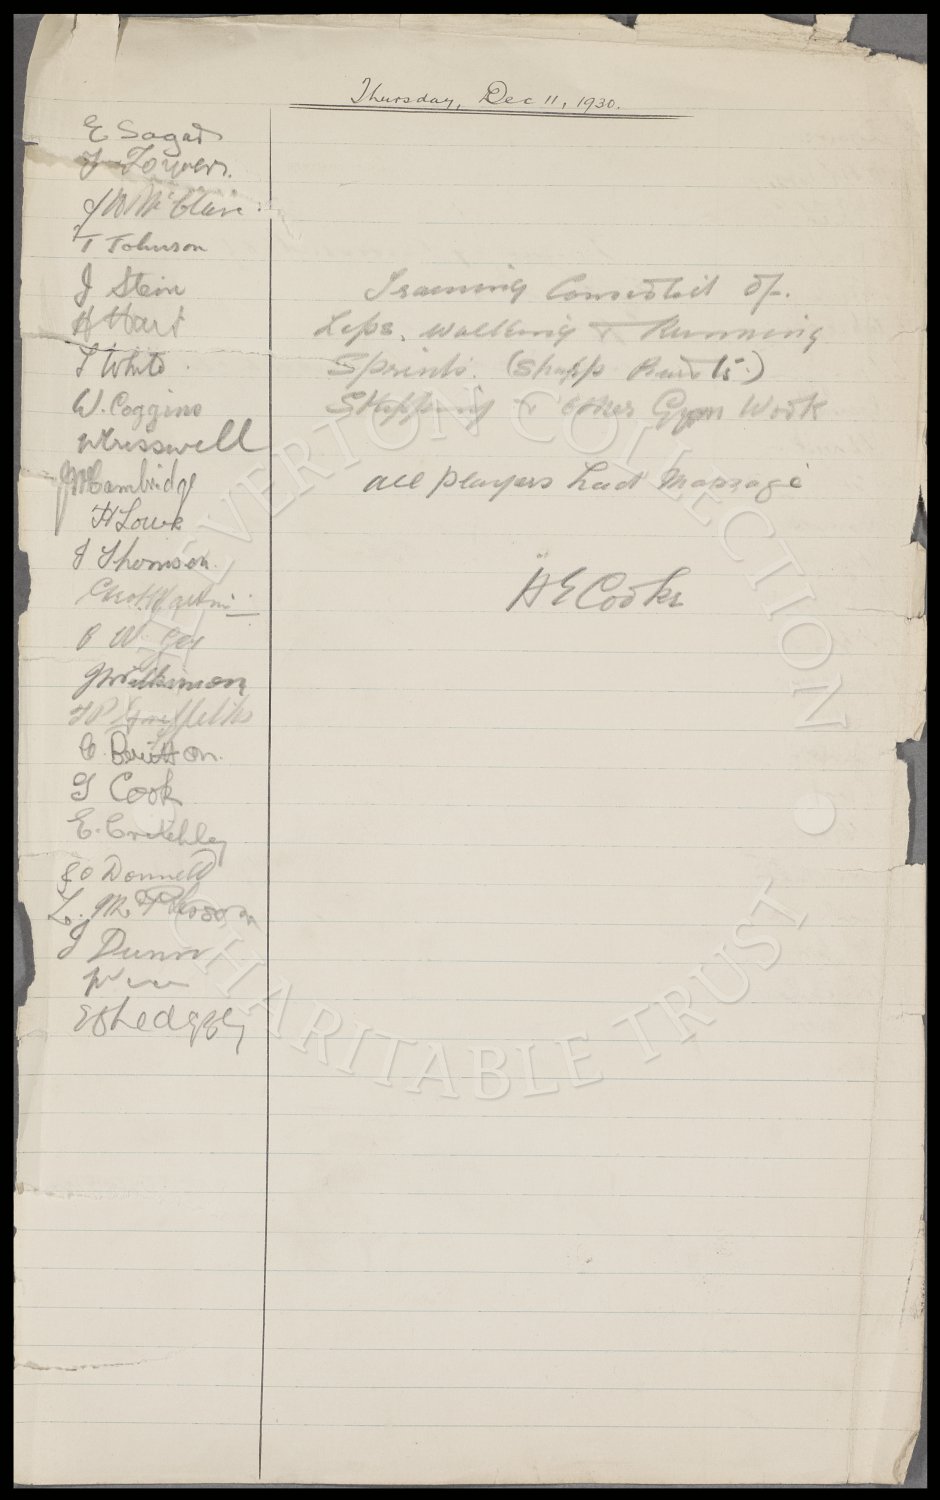 Thursday, Dec 11, 1930.
E Sagar
J Towers.
J W McClure
T Johnson
J Stein
H Hart
T White.
W. Coggins
W Cresswell
J M Cambridge
H Lowe
J Thomson.
Chas Gee
J Wilkinson
T P Griffiths
C. Britton.
G Cook
E. Critchley
O Donnell
L. McPherson
J Dunn
Training Consisted of.
Laps. Walking & Running
Sprints. (Sharp Bursts.)
Skipping & other Gym Work
All players had Massage
H E Cooke
THE EVERTON COLLECTION
CHARITABLE TRUST